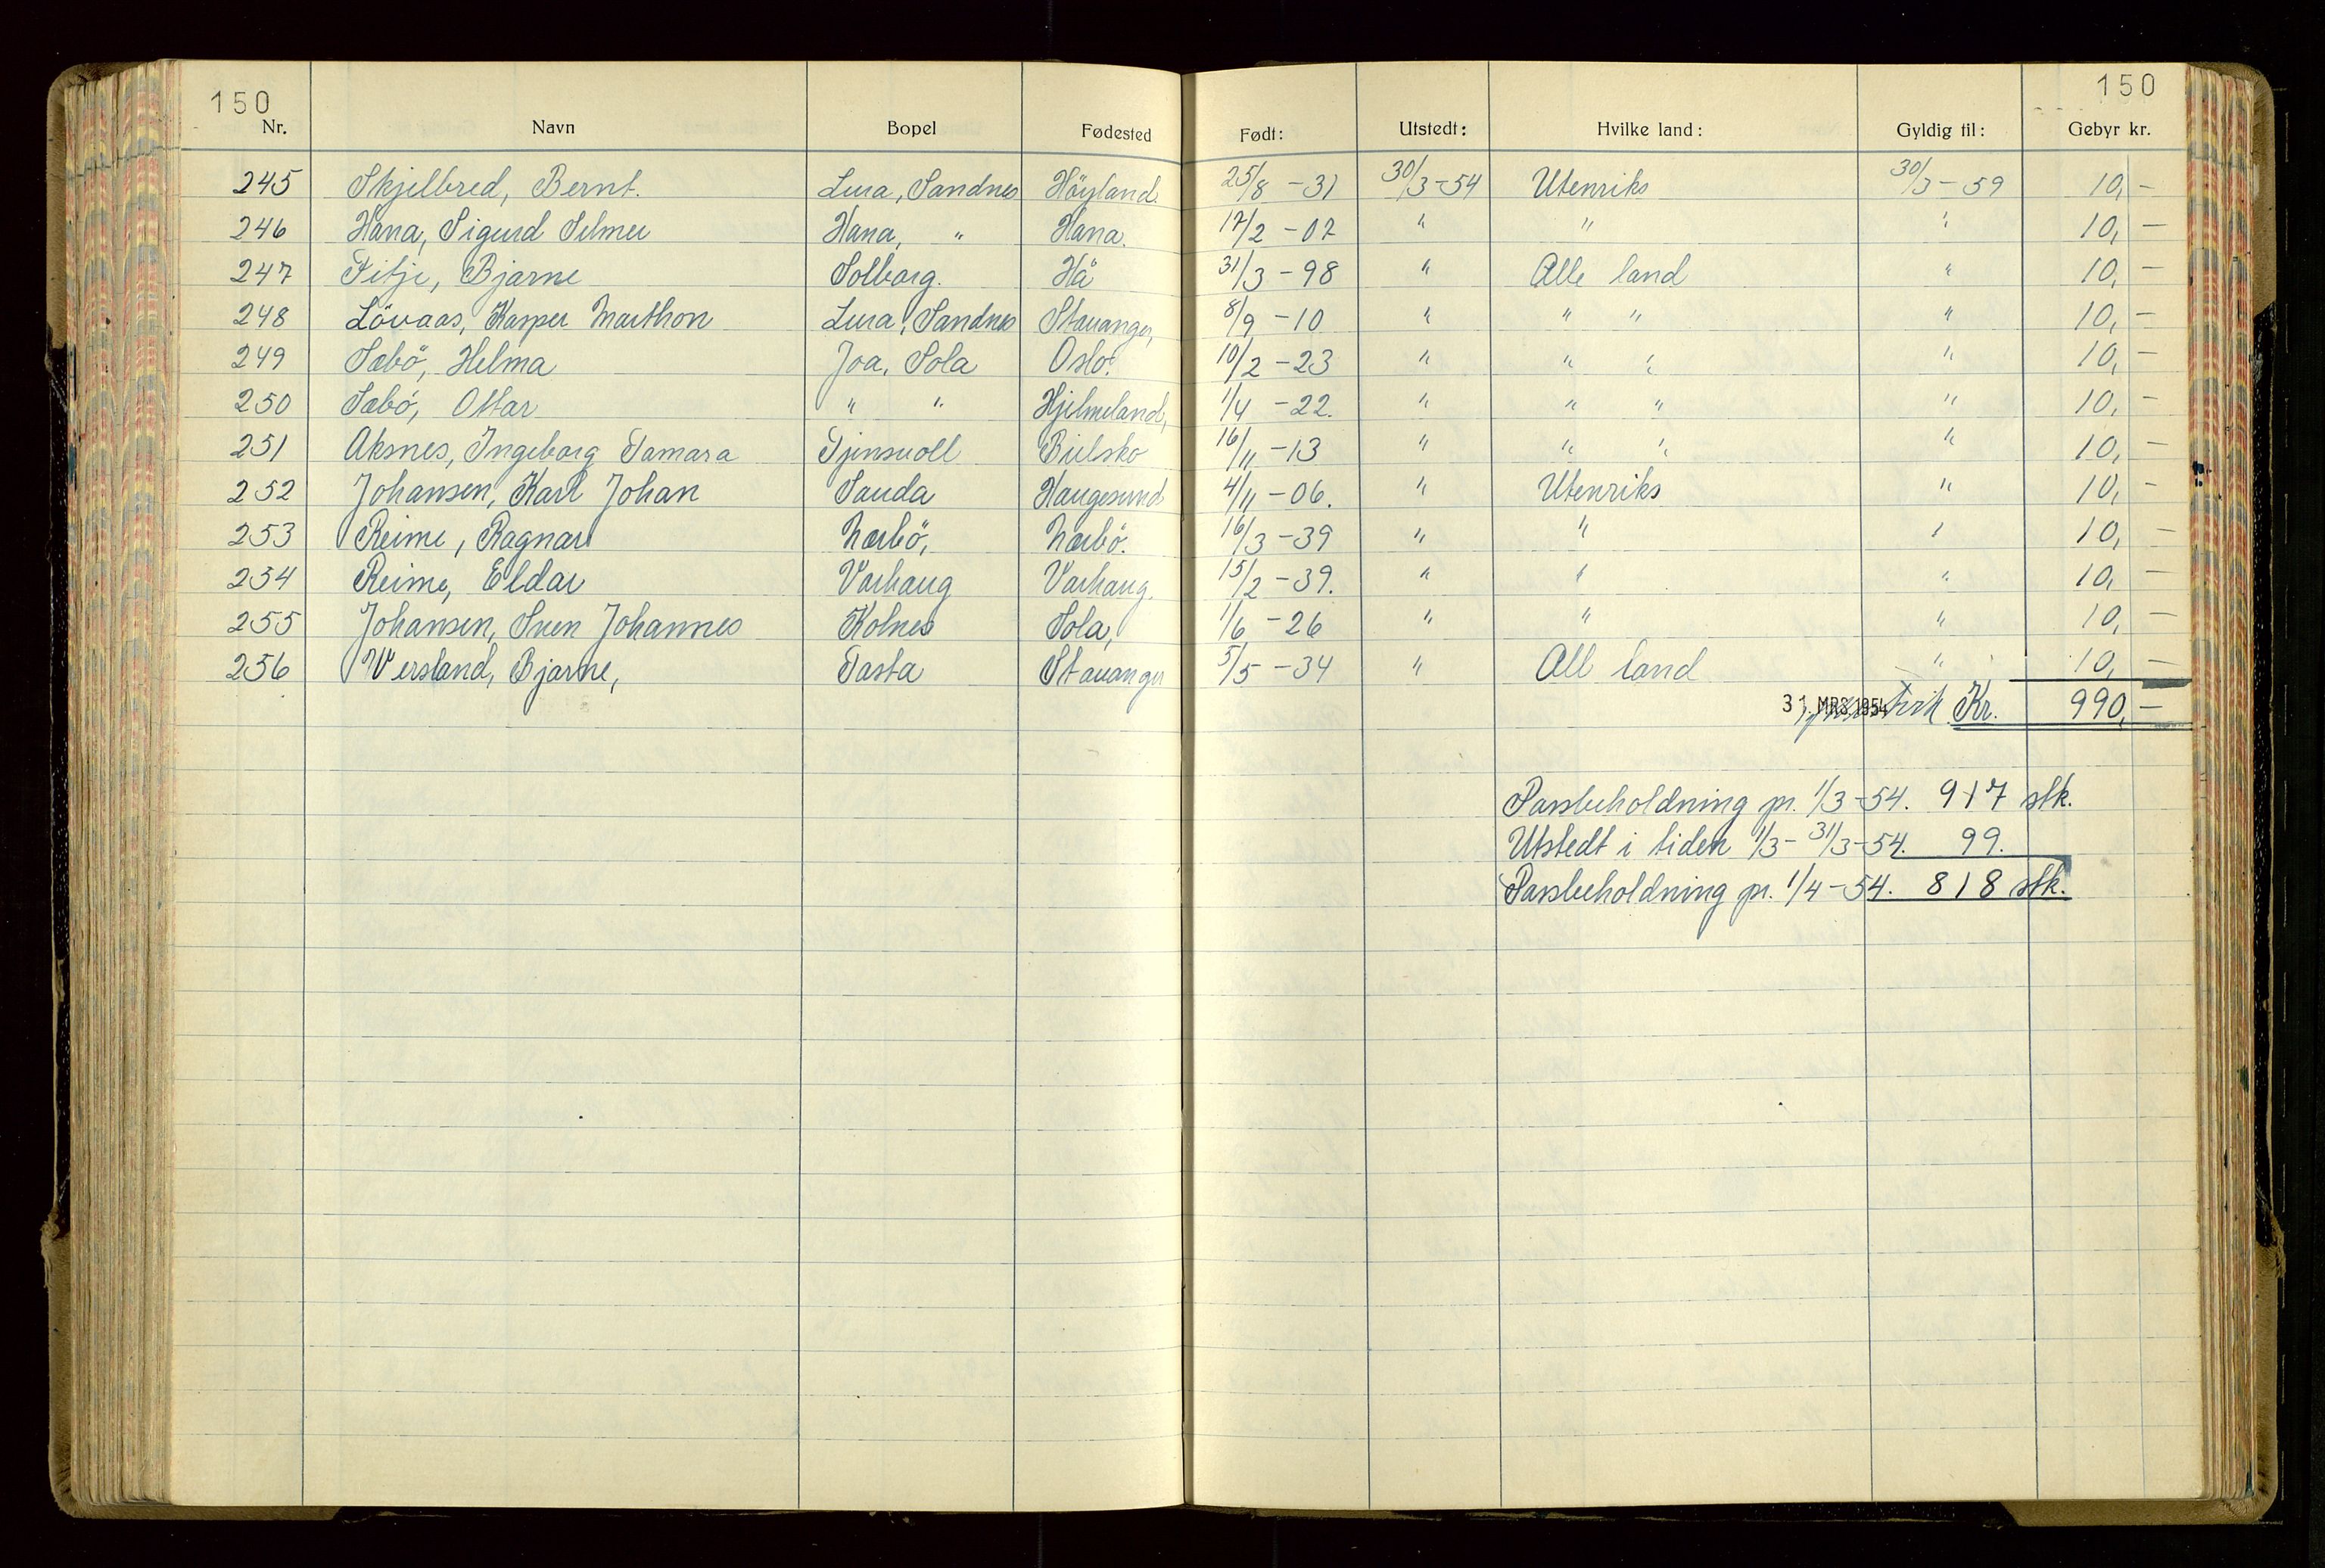 150 150
Nr. Navn Bopel Fødested Født: Utstedt: Hvilke land: Gyldig til: Gebyr kr.
245 Skjelbred, Bernt. Lura, Sandnes Höyland. 25/8 -31 30/3-54 Utenriks 30/3-59 10,-
246 Hana, Sigurd Selmer Hana, " Hana. 17/2 -02 " " " 10,-
247 Fitje, Bjarne Solborg. Hå 31/3 -98 " Alle land " 10,-
248 Lövaas, Kasper Marthon Lura, Sandnes Stavanger, 8/9 -10 " " " " 10,-
249 Sæbö, Helma Joa, Sola Oslo. 10/2 -23 " " " " 10,-
250 Sæbö, Ottar " " Hjelmeland, 1/4 -22. " " " " 10,-
251 Aksnes, Ingeborg Tamara Tjensvoll Bielsko 16/11 -13 " " " " 10,-
252 Johansen, Karl Johan Sauda Haugesund 4/11 -06. " Utenriks " 10,-
253 Reime, Ragnar Nærbö, Nærbö. 16/3 -39 " " " 10,-
254 Reime, Eldar Varhaug Varhaug. 15/2 -39. " " " 10,-
255 Johansen, Sven Johannes Kolnes Sola, 1/6 -26 " " " 10,-
256 Wersland, Bjarne, Tasta Stavanger 5/5 -34 " All land " 10,-
31. MRS. 1954 Kr. 990,-
Passbeholdning pr. 1/3-54. 917 stk.
Utstedt i tiden 1/3- 31/3-54. 99.
Passbeholdning pr. 1/4-54. 818 stk.